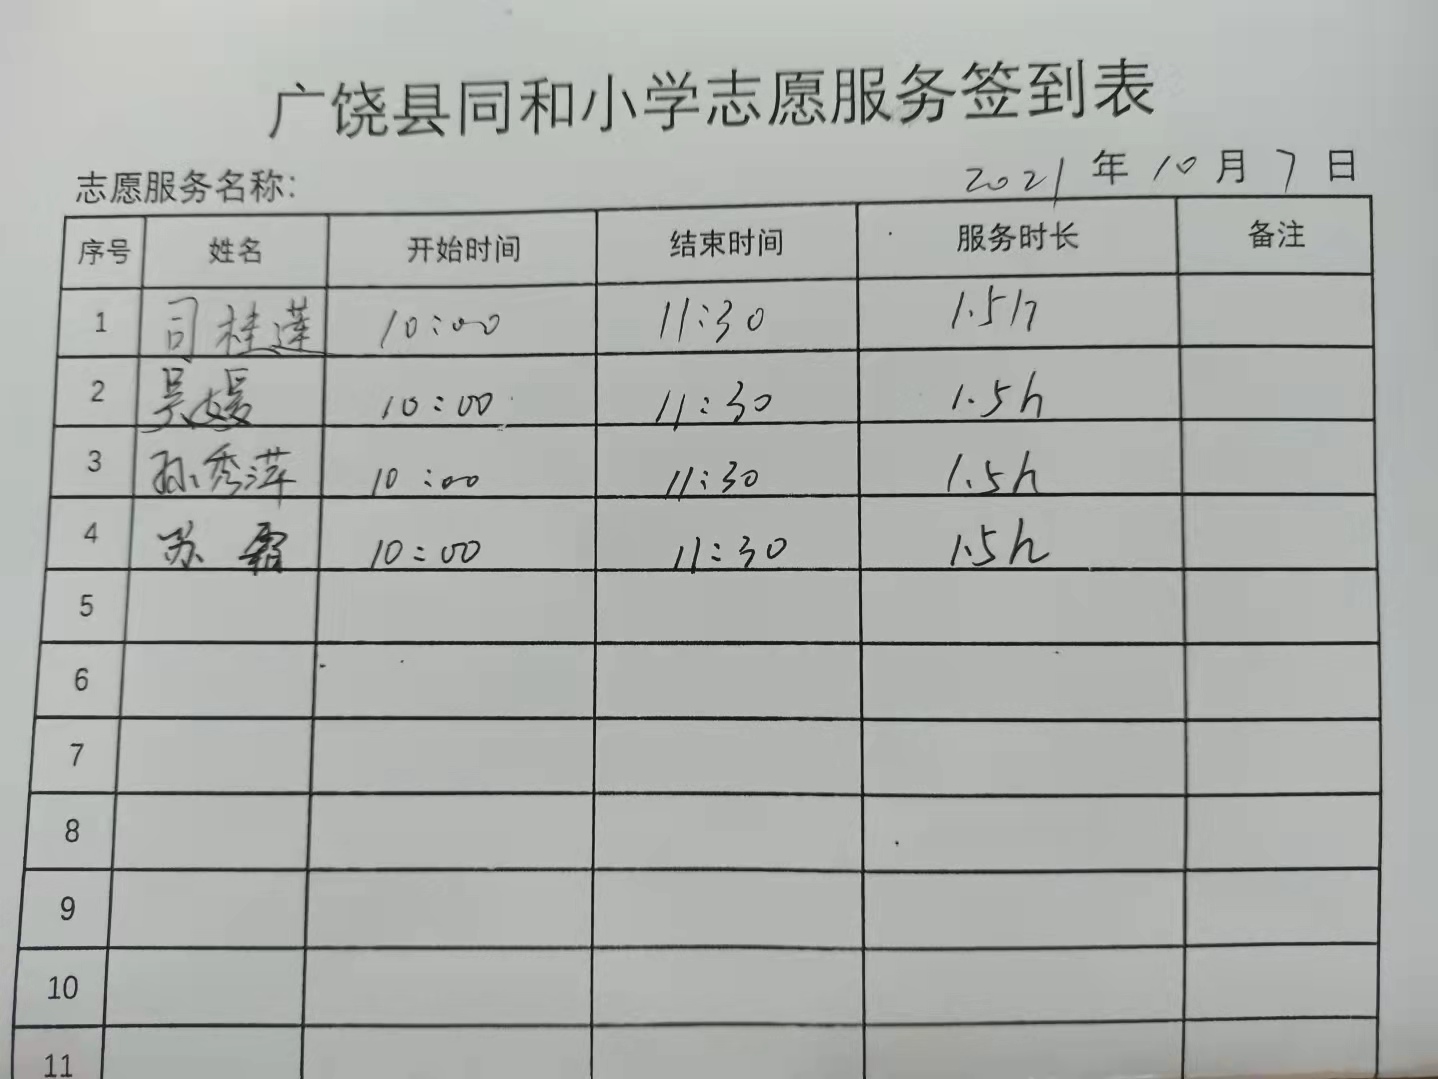 广饶县同和小学志愿服务签到表
志愿服务名称: 2021年10月7日
序号 姓名 开始时间 结束时间 服务时长 备注
1 司桂莲 10:00 11:30 1.5h
2 吴媛 10:00 11:30 1.5h
3 孙秀萍 10:00 11:30 1.5h
4 苏霜 10:00 11:30 1.5h
5
6
7
8
9
10
11